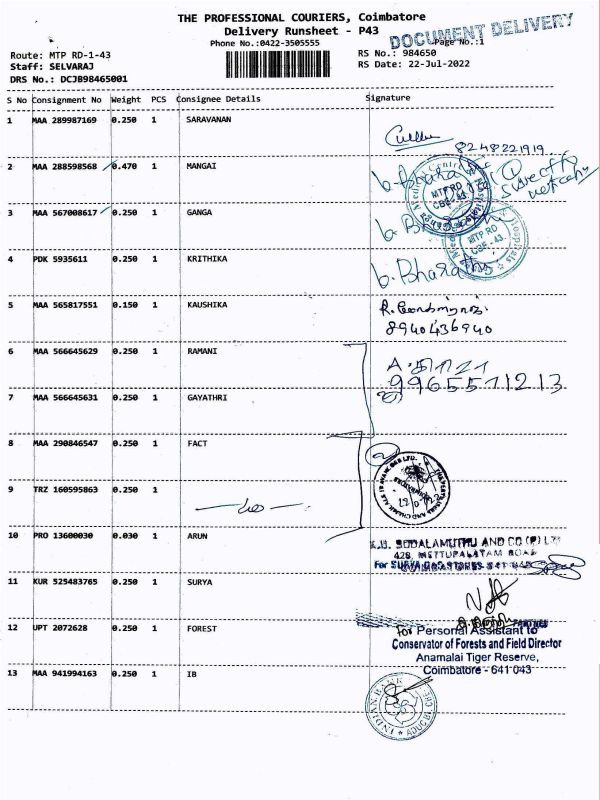 THE PROFESSIONAL COURIERS, Coimbatore
Delivery Runsheet - P43
DOCUMENT DELIVERY
Phone No.:0422-3505555
Page No.:1
Route: MTP RD-1-43
RS No.: 984650
Staff: SELVARAJ
RS Date: 22-Jul-2022
DRS No.: DCJB98465001
S No Consignment No Weight PCS Consignee Details Signature
1 MAA 289987169 0.250 1 SARAVANAN
8248221919
2 MAA 288598568 0.470 1 MANGAI
b. Bharathi
MTP RD
CBE-43
3 MAA 567008617 0.250 1 GANGA
MTP RD
CBE-43
4 PDK 5935611 0.250 1 KRITHIKA
b. Bharathi
5 MAA 565817551 0.150 1 KAUSHIKA
8940436940
6 MAA 566645629 0.250 1 RAMANI
9965571213
7 MAA 566645631 0.250 1 GAYATHRI
8 MAA 290846547 0.250 1 FACT
9 TRZ 160595863 0.250 1
10 PRO 13600030 0.030 1 ARUN
SODALAMUTHU AND CO (P) LTD
428, METTUPALAYAM ROAD
11 KUR 525483765 0.250 1 SURYA
12 UPT 2072628 0.250 1 FOREST
For Personal Assistant to
Conservator of Forests and Field Director
Anamalai Tiger Reserve,
Coimbatore - 641 043
13 MAA 941994163 0.250 1 IB
INDIAN BANK